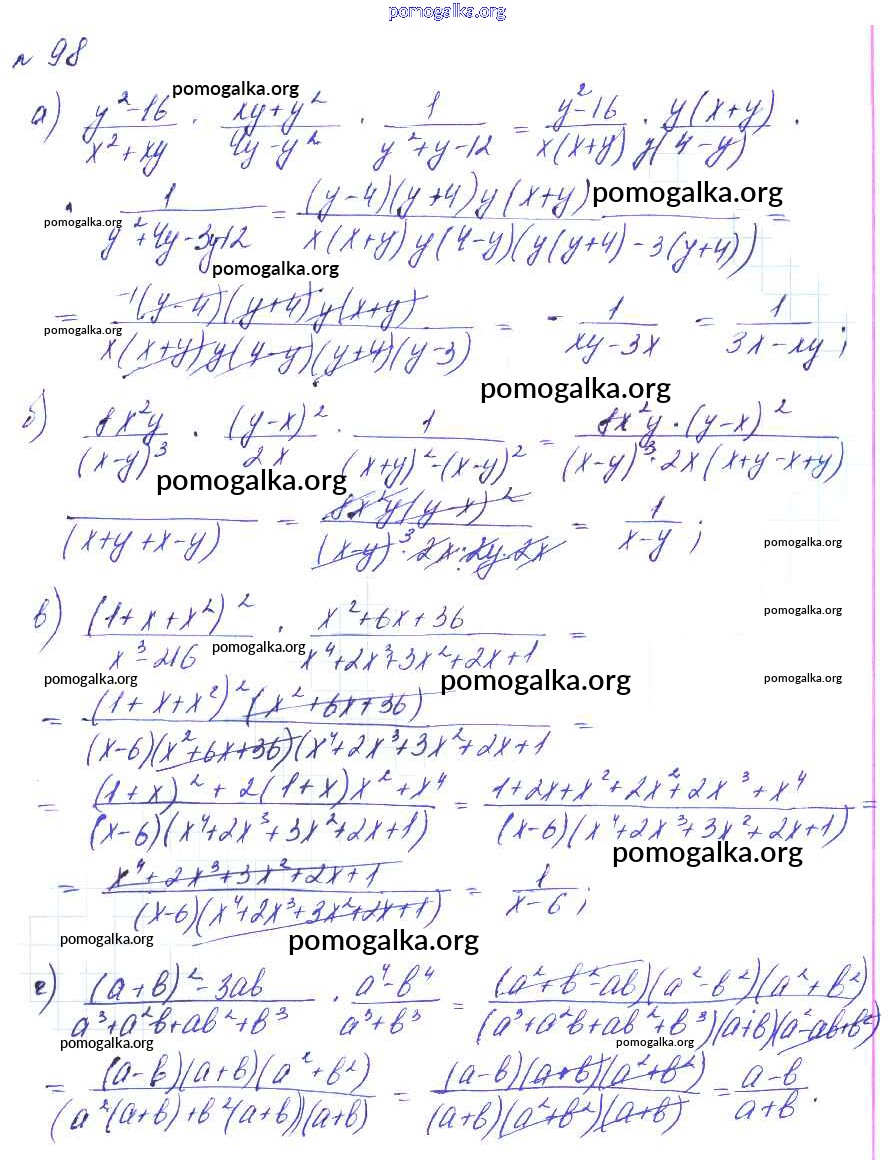 pomogalka.org
№ 98
pomogalka.org
а) (y²-16)/(x²+xy) · (xy+y²)/(4y-y²) · 1/(y²+y-12) = (y²-16)/(x(x+y)) · y(x+y)/(y(4-y)) ·
· 1/(y²+4y-3y-12) = ((y-4)(y+4)y(x+y))/(x(x+y)y(4-y)(y(y+4)-3(y+4))) =
pomogalka.org
pomogalka.org
pomogalka.org
= (-1(y-4)(y+4)y(x+y))/(x(x+y)y(y-y)(y+4)(y-3)) = - 1/(xy-3x) = 1/(3x-xy) ;
pomogalka.org
pomogalka.org
б) 8x²y/(x-y)³ · (y-x)²/2x · 1/((x+y)²-(x-y)²) = (8x²y·(y-x)²)/((x-y)³·2x(x+y-x+y)
pomogalka.org
/(x+y+x-y) = (8x²y(y-x)²)/((x-y)³·2x·2y·2x) = 1/(x-y) ;
pomogalka.org
pomogalka.org
в) (1+x+x²)²/(x³-216) · (x²+6x+36)/(x⁴+2x³+3x²+2x+1) =
pomogalka.org
pomogalka.org
pomogalka.org
pomogalka.org
= ((1+x+x²)²(x²+6x+36))/((x-6)(x²+6x+36)(x⁴+2x³+3x²+2x+1) =
= ((1+x)²+2(1+x)x²+x⁴)/((x-6)(x⁴+2x³+3x²+2x+1)) = (1+2x+x²+2x²+2x³+x⁴)/((x-6)(x⁴+2x³+3x²+2x+1)) =
pomogalka.org
= (x⁴+2x³+3x²+2x+1)/((x-6)(x⁴+2x³+3x²+2x+1)) = 1/(x-6) ;
pomogalka.org
pomogalka.org
г) ((a+b)²-3ab)/(a³+a²b+ab²+b³) · (a⁴-b⁴)/(a³+b³) = ((a²+b²-ab)(a²-b²)(a²+b²))/((a³+a²b+ab²+b³)(a+b)(a²-ab+b²))
pomogalka.org
pomogalka.org
= ((a-b)(a+b)(a²+b²))/((a²(a+b)+b²(a+b))(a+b)) = ((a-b)(a+b)(a²+b²))/((a+b)(a²+b²)(a+b)) = (a-b)/(a+b) .